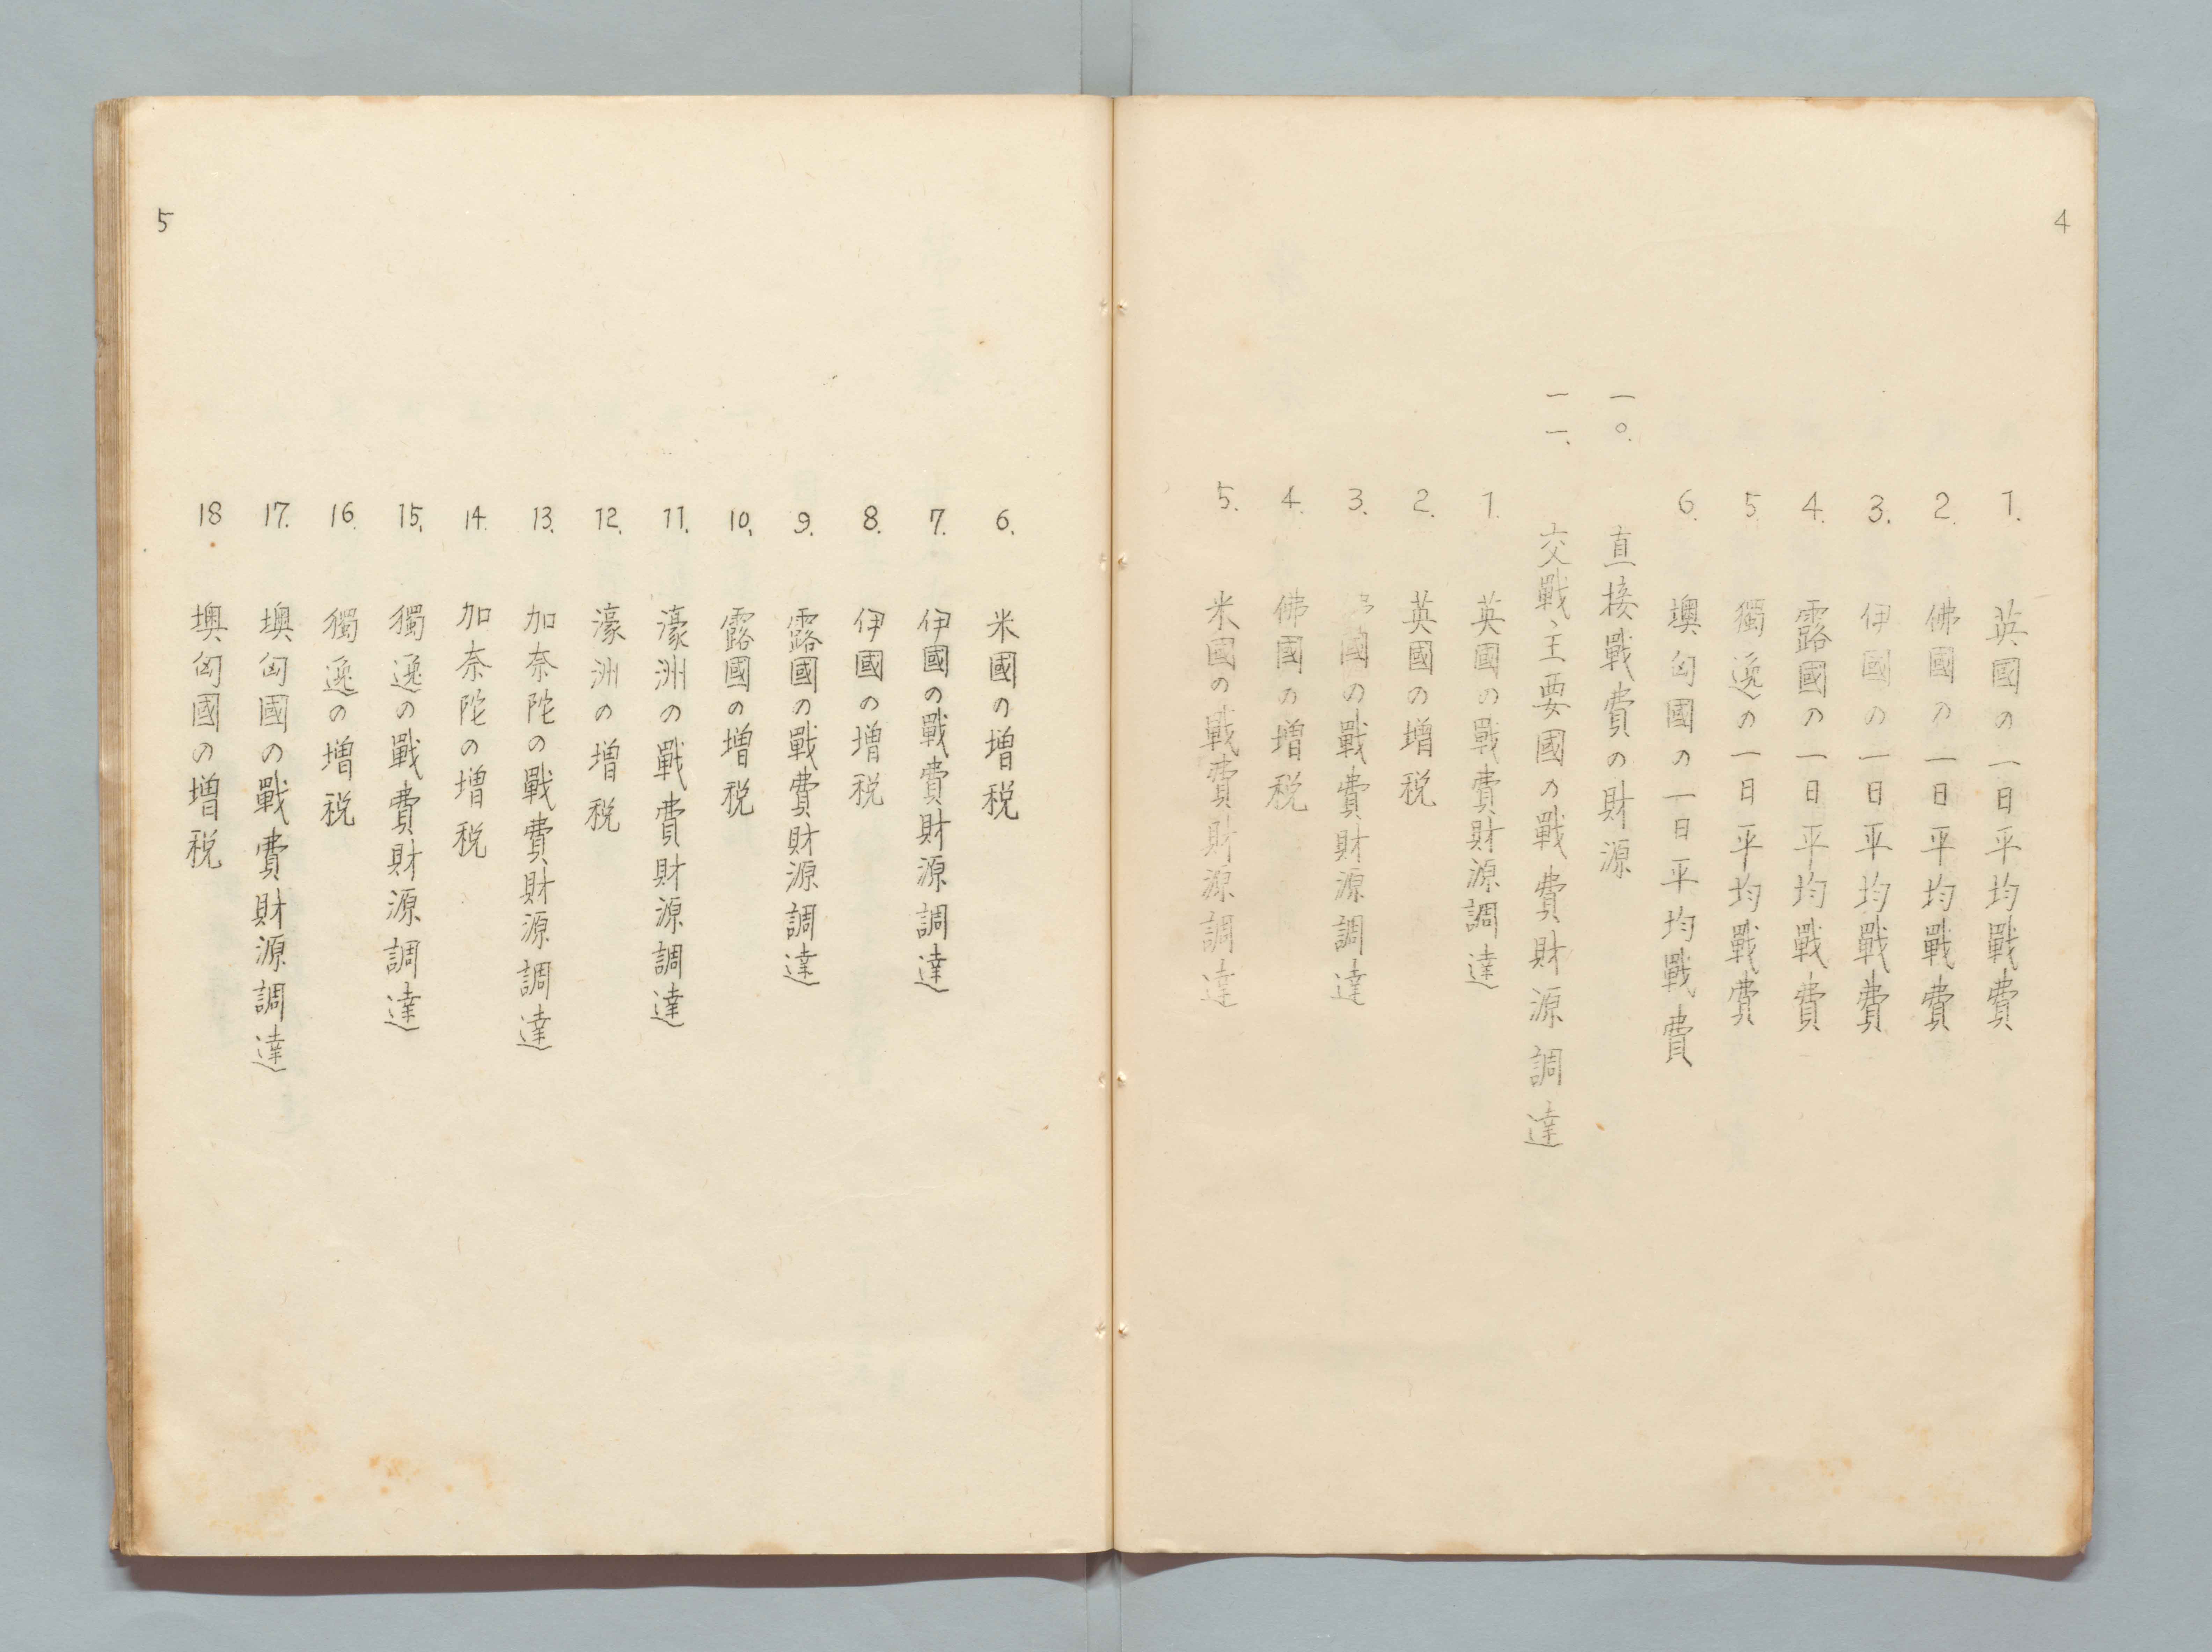 4
1. 英國の一日平均戰費
2. 佛國の一日平均戰費
3. 伊國の一日平均戰費
4. 露國の一日平均戰費
5. 獨逸の一日平均戰費
6. 墺匈國の一日平均戰費
一〇. 直接戰費の財源
一一、 交戰主要國の戰費財源調達
1. 英國の戰費財源調達
2. 英國の増税
3. 國の戰費財源調達
4. 佛國の増税
5. 米國の戰費財源調達
5
6. 米國の増税
7. 伊國の戰費財源調達
8. 伊國の増税
9. 露國の戰費財源調達
10. 露國の増税
11. 濠洲の戰費財源調達
12. 濠洲の増税
13. 加奈陀の戰費財源調達
14. 加奈陀の増税
15. 獨逸の戰費財源調達
16. 獨逸の増税
17. 墺匈國の戰費財源調達
18 墺匈國の増税